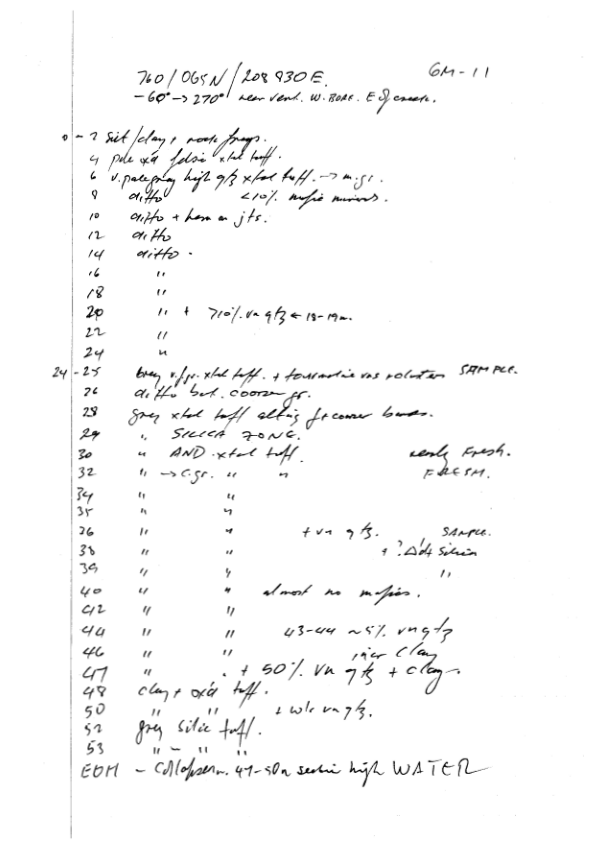 GM-11
760/065N/208930E.
-60° → 270° near vent. W. BORE. E of creek.
0 - 2 Silt/clay + rock frags.
4 pale oxd felsic xtal tuff.
6 v. pale gray high qtz xtal tuff. → m.gr.
8 ditto <10% mafic minerals.
10 ditto + hem on jts.
12 ditto
14 ditto.
16 "
18 "
20 " + >10% vn qtz ← 18-19m.
22 "
24 "
24 - 25 grey v.f.gr. xtal tuff. + tourmaline SAMPLE.
26 ditto but. coarse gr.
28 grey xtal tuff alting f + coarser bands.
29 " SILICA ZONE.
30 " AND xtal tuff. nearly Fresh.
32 " → c.gr. " " FRESH.
34 " "
35 " "
36 " " + vn qtz. SAMPLE.
38 " " + ? silica
39 " " "
40 " " almost no mafics.
42 " "
44 " " 43-44 ~5% vn qtz
46 " " incr clay
47 " . + 50% vn qtz + clay.
48 clay + oxd tuff.
50 " " + vn qtz.
52 grey silic tuff.
53 " - " "
EOH - 47-50m high WATER